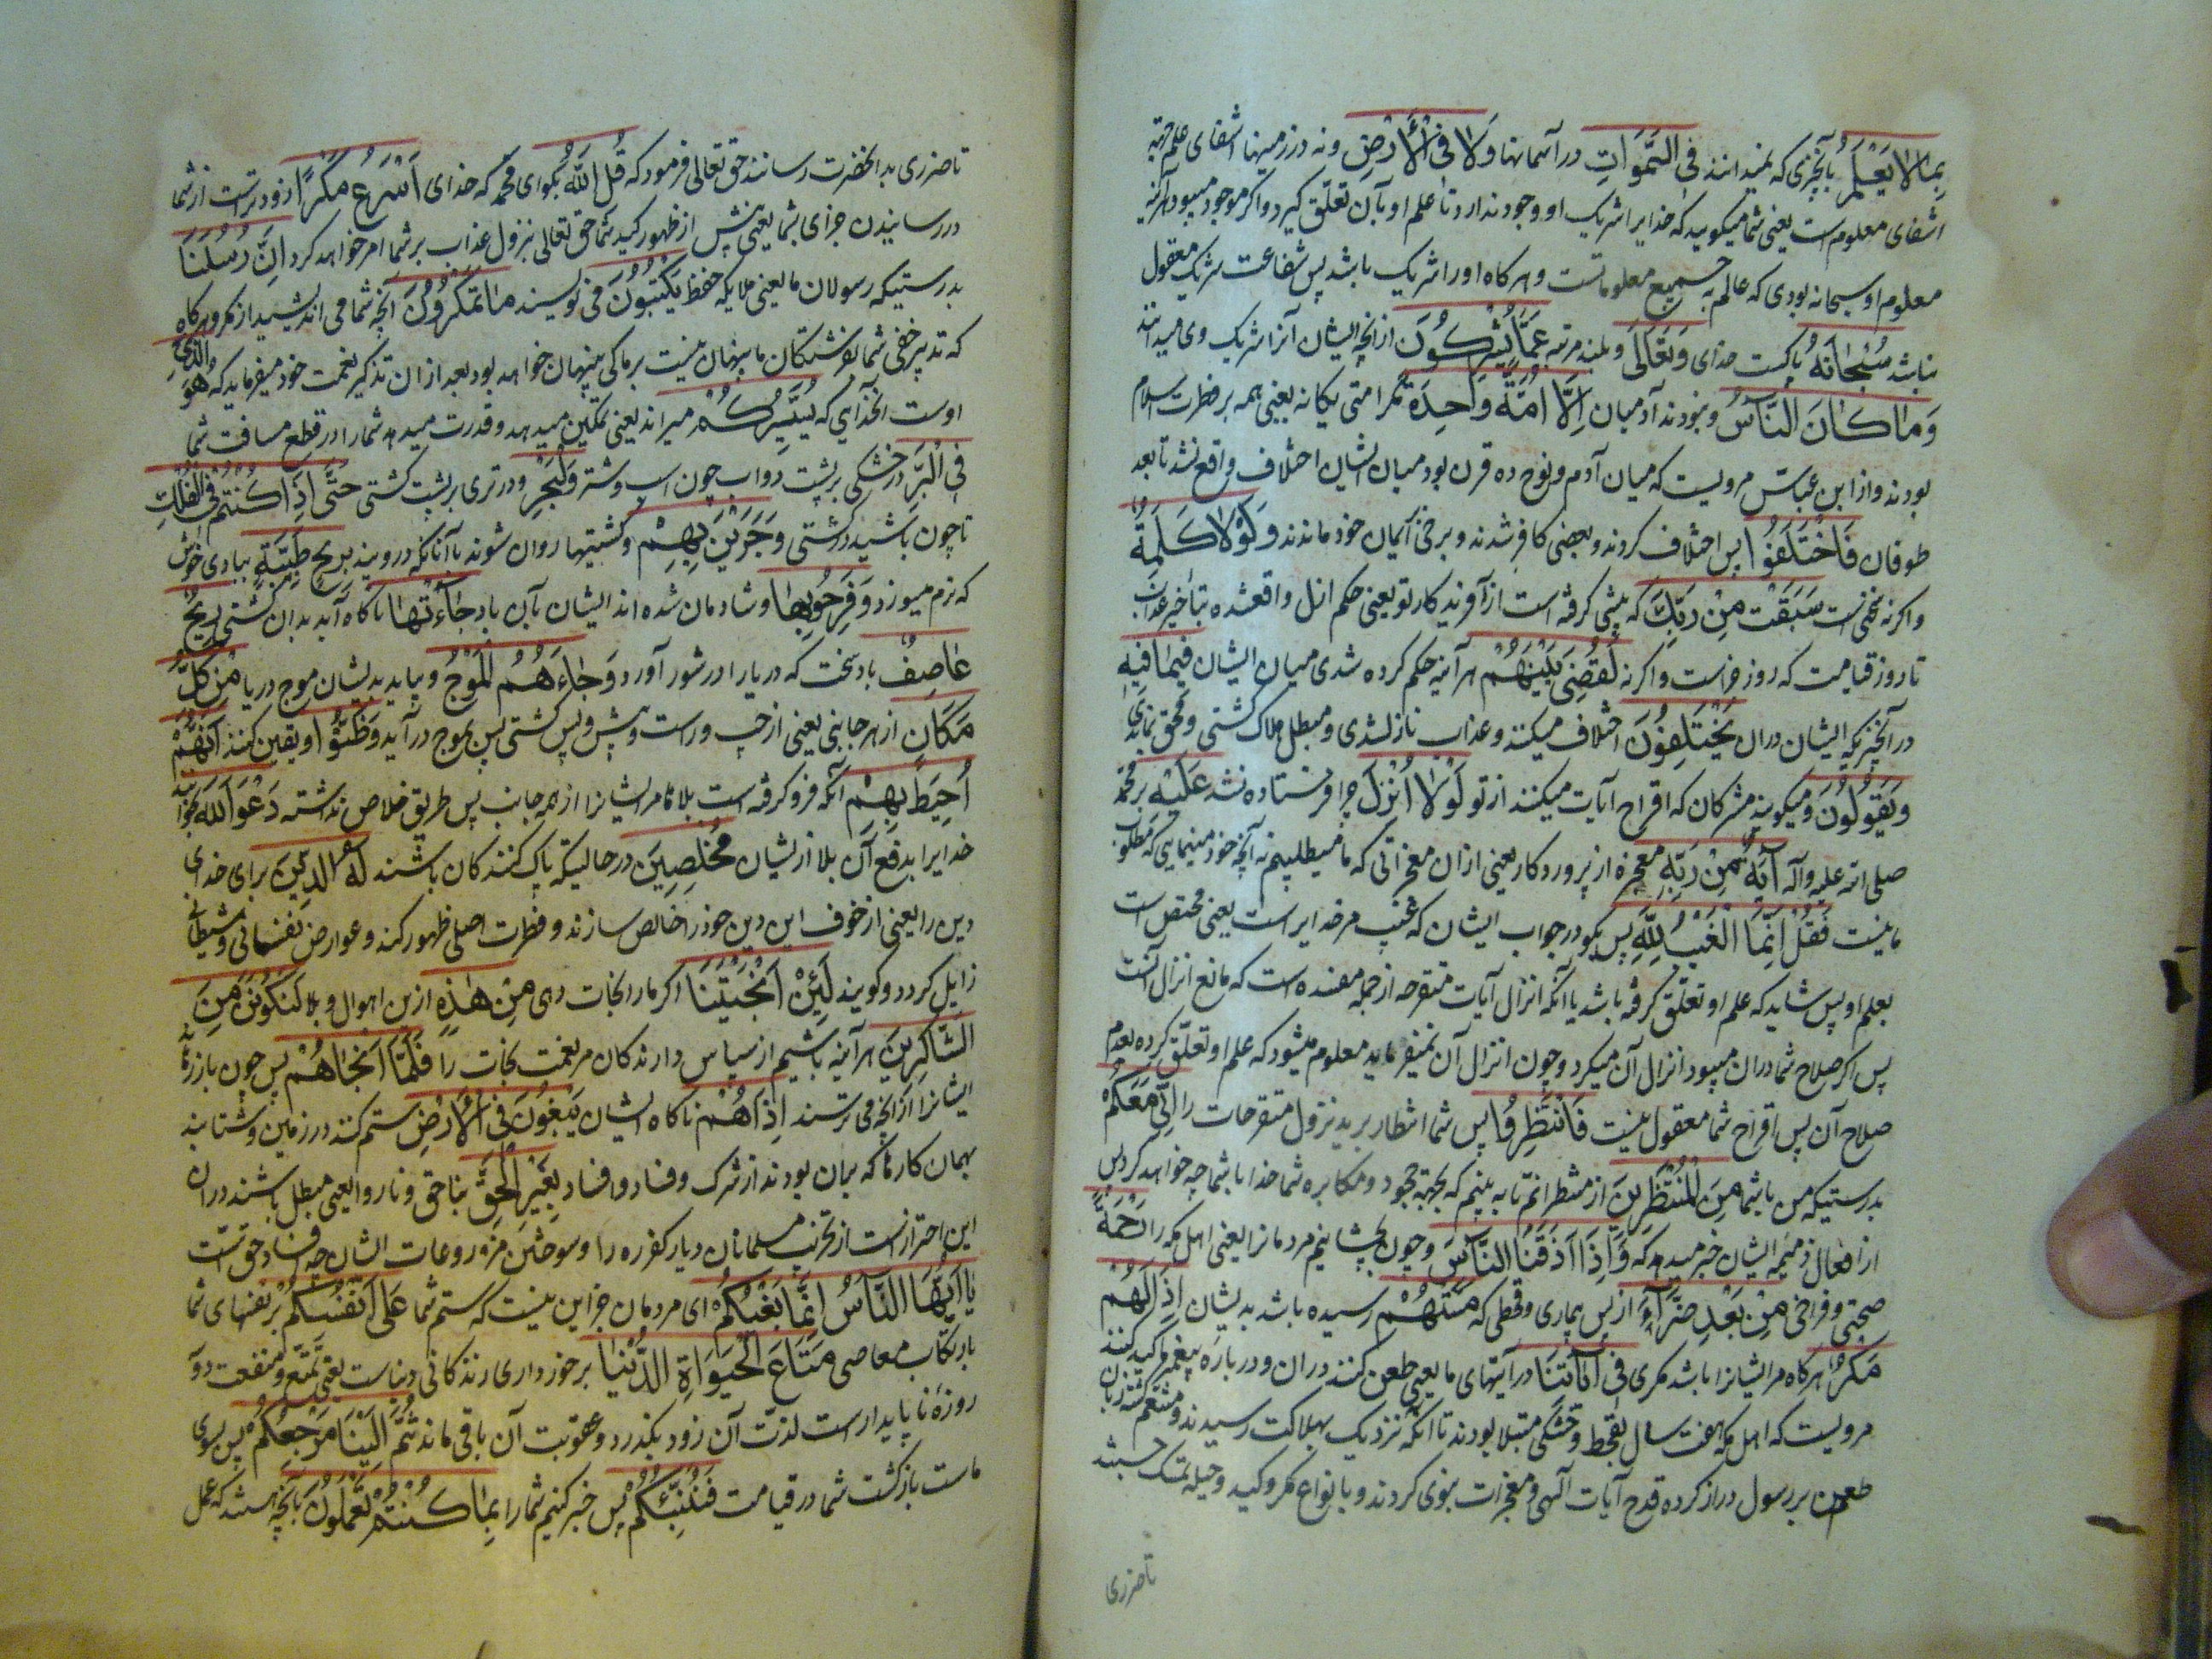 بِمَا لَا يَعْلَمُ بآنچیزی که نمیدانند فِي السَّمَوَاتِ در آسمانها وَلَا فِي الْأَرْضِ و نه در زمینها انتفای علم جهة
انتفای معلوم است یعنی شما میگویید که خدایرا شریک است او وجود ندارد تا علم او بآن تعلّق گیرد و اگر موجود میبود هرآینه
معلوم او سبحانه بودی که عالم به جمیع معلوماتست و هرگاه او را شریک نباشد پس شفاعت شریک معقول
نباشد سُبْحَانَهُ پاکست خدای وَتَعَالَى و بلند مرتبه عَمَّا يُشْرِكُونَ از آنچه ایشان آنرا شریک وی میدانند
وَمَا كَانَ النَّاسُ و نبودند آدمیان إِلَّا أُمَّةً وَاحِدَةً مگر امتی یگانه یعنی همه بر فطرت اسلام
بودند و از ابن عباس مرویست که میان آدم و نوح ده قرن بود میان ایشان اختلاف واقع نشد تا بعد
طوفان فَاخْتَلَفُوا پس اختلاف کردند و بعضی کافر شدند و برخی بر ایمان خود ماندند وَلَوْلَا كَلِمَةٌ
و اگر نه سخنی است سَبَقَتْ مِنْ رَبِّكَ که پیشی گرفته است از آفریدکار تو یعنی حکم ازل واقعشده بتاخیر عذاب
تا روز قیامت که روز جزاست و اگر نه لَقُضِيَ بَيْنَهُمْ هر آینه حکم کرده شدی میان ایشان فِيمَا فِيهِ
در آنچیزیکه ایشان در ان يَخْتَلِفُونَ اختلاف میکنند و عذاب نازلشدی و مبطل هلاک گشتی و محق بماندی
وَيَقُولُونَ و میگویند مشرکان که اقتراح آیات میکنند از تو لَوْلَا أُنْزِلَ چرا فرستاده نشد عَلَيْهِ بر محمد
صلی الله علیه وآله آيَةٌ مِنْ رَبِّهِ معجزه از پروردکار یعنی ازان معجزاتی که ما میطلبیم نه آنچه خود مینمایی که مطلوب
ما نیست فَقُلْ إِنَّمَا الْغَيْبُ لِلَّهِ پس بگو در جواب ایشان که غیب مر خدایراست یعنی مختص است
بعلم او پس شاید که علم او تعلّق گرفته باشد بآنکه انزال آیات مقترحه از جمله مفسده است که مانع انزال آنست
پس اگر صلاح شما دران میبود انزال آن میکرد و چون انزال آن نمیفرماید معلوم میشود که علم او تعلّق کرده بعدم
صلاح آن پس اقتراح شما معقول نیست فَانْتَظِرُوا پس شما انتظار برید نزول مقترحات را إِنِّي مَعَكُمْ
بدرستیکه من با شما مِنَ الْمُنْتَظِرِينَ از منتظرانم تا به بینم که بجهة جحود و مکابره شما خدا با شما چه خواهد کرد پس
از افعال ذمیمه ایشان خبر میدهد که وَإِذَا أَذَقْنَا النَّاسَ و چون بچشانیم مردمانرا یعنی اهل مکه را رَحْمَةً
صحتی و فراخی مِنْ بَعْدِ ضَرَّاءَ از پس بیماری و قحطی که مَسَّتْهُمْ رسیده باشد بدیشان إِذَا لَهُمْ
مَكْرٌ هرگاه مر ایشانرا باشد مکری فِي آيَاتِنَا در آیتهای ما یعنی طعن کنند دران و درباره پیغمبر ما کید کنند
مرویست که اهل مکه هفت سال بقحط و خشکی مبتلا بودند تا آنکه نزدیک بهلاکت رسیدند و متنعم شده زبان
طعن بر رسول دراز کرده قدح آیات آلهی و معجزات نبوی کردند و بانواع مکر و کید و حیله تمسک جستند
تا ضرری
تا ضرری بدانحضرت رسانند حق تعالی فرمود که قُلِ اللَّهُ بگو ای محمد که خدای أَسْرَعُ مَكْرًا زودتراست از شما
در رسانیدن جزای بشما یعنی پیش از ظهور کید شما حق تعالی بنزول عذاب بر شما امر خواهد کرد إِنَّ رُسُلَنَا
بدرستیکه رسولان ما یعنی ملایکه حفظ يَكْتُبُونَ می نویسند مَا تَمْكُرُونَ آنچه شما می اندیشید از مکر و هرگاه
که تدبیر خفی شما بفرشتکان ما پنهان نیست بر ما کی پنهان خواهد بود بعد ازان تذکیر نعمت خود میفرماید که هُوَ الَّذِي
اوست آنخدایی که يُسَيِّرُكُمْ میراند یعنی تمکین میدهد و قدرت میدهد شما را در قطع مسافت شما
فِي الْبَرِّ در خشکی بر پشت دواب چون اسب و شتر وَالْبَحْرِ و در تری بر پشت کشتی حَتَّى إِذَا كُنْتُمْ فِي الْفُلْكِ
تا چون باشید در کشتی وَجَرَيْنَ بِهِمْ و کشتیها روان شوند با آنانکه درویند بِرِيحٍ طَيِّبَةٍ ببادی خوش
که نرم میوزد وَفَرِحُوا بِهَا و شادمان شده اند ایشان بآن باد جَاءَتْهَا ناکاه آید بدان کشتی رِيحٌ
عَاصِفٌ باد سخت که دریا را در شور آورد وَجَاءَهُمُ الْمَوْجُ و بیاید بدیشان موج دریا مِنْ كُلِّ
مَكَانٍ از هر جانبی یعنی از چپ و راست و پیش و پس کشتی پس بموج درآید وَظَنُّوا و یقین کنند أَنَّهُمْ
أُحِيطَ بِهِمْ آنکه فرو کرفته است بلا مر ایشانرا از همه جانب پس طریق خلاص نداشته دَعَوُا اللَّهَ بخوانند
خدایرا بدفع آن بلا از یشان مُخْلِصِينَ در حالیکه پاک کنندکان باشند لَهُ الدِّينَ برای خدای
دین را یعنی از خوف این دین خود را خالص سازند و فطرت اصلی ظهور کند و عوارض نفسانی و شیطانی
زایل کردد و کویند لَئِنْ أَنْجَيْتَنَا اکر ما را نجات دهی مِنْ هَذِهِ ازین اهوال و بلا لَنَكُونَنَّ مِنَ
الشَّاكِرِينَ هر آینه باشیم از سپاس دارندکان مر نعمت نجات را فَلَمَّا أَنْجَاهُمْ پس چون باز رهاند
ایشانرا از آنچه می ترسند إِذَا هُمْ ناکاه ایشان يَبْغُونَ فِي الْأَرْضِ ستم کنند در زمین و شتابند
بهمان کارها که بران بودند از شرک و فساد و افساد بِغَيْرِ الْحَقِّ بناحق و ناروا یعنی مبطل باشند دران
این احترازست از تخریب مسلمانان دیار کفره را و سوختن مزروعات ایشان چه فساد حق تست
يَا أَيُّهَا النَّاسُ إِنَّمَا بَغْيُكُمْ ای مردمان جز این نیست که ستم شما عَلَى أَنْفُسِكُمْ بر نفسهای شما
بارتکاب معاصی مَتَاعَ الْحَيَوَاةِ الدُّنْيَا برخورداری زندکانی دنیاست یعنی تمتّع و منفعت دو
روزهٔ ناپایدارست لذّت آن زود بکذرد و عقوبت آن باقی ماند ثُمَّ إِلَيْنَا مَرْجِعُكُمْ پس بسوی
ماست بازکشت شما در قیامت فَنُنَبِّئُكُمْ پس خبر کنیم شما را بِمَا كُنْتُمْ تَعْمَلُونَ بآنچه هستید که عمل